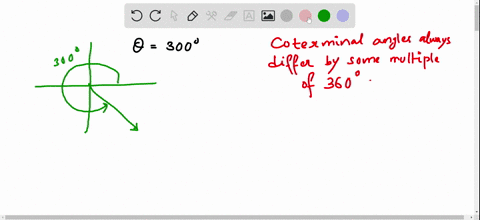 300°
θ = 300°
Coterminal angles always
differ by some multiple
of 360°.